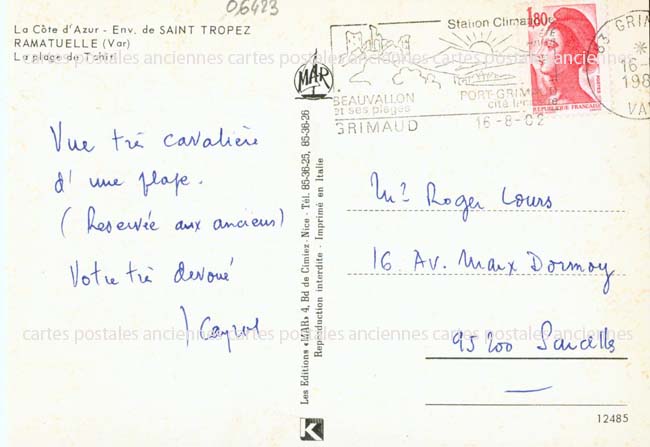 06423
La Côte d'Azur - Env. de SAINT TROPEZ
RAMATUELLE (Var)
La plage de Tahiti
MAR
Vue trè cavalière
d'une plage.
(Reservée aux anciens)
Votre trè devoué
J Cayrol
Les Editions «MAR» 4, Bd de Cimiez - Nice - Tél. 85-36-25, 85-36-26
Reproduction interdite - Imprimé en Italie
K
Station Climatique
BEAUVALLON
et ses plages
PORT-GRIMAUD
cité lacustre
GRIMAUD
16-8-82
1,80
REPUBLIQUE FRANÇAISE
83 GRIM
16-
198
VA
Mr Roger Cours
16 Av. Marx Dormoy
95200 Sarcelles
12485
cartes postales anciennes cartes postales anciennes cartes postales anciennes
cartes postales anciennes cartes postales anciennes cartes postales anciennes